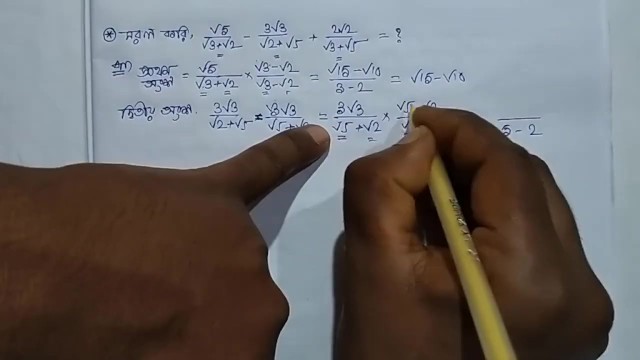 * সরল করি, √5/(√3+√2) - 3√3/(√2+√5) + 2√2/(√3+√5) = ?
প্রথম অংশ = √5/(√3+√2) × (√3-√2)/(√3-√2) = (√15-√10)/(3-2) = √15-√10
দ্বিতীয় অংশ, 3√3/(√2+√5) = 3√3/(√5+√2) = 3√3/(√5+√2) × 5-2